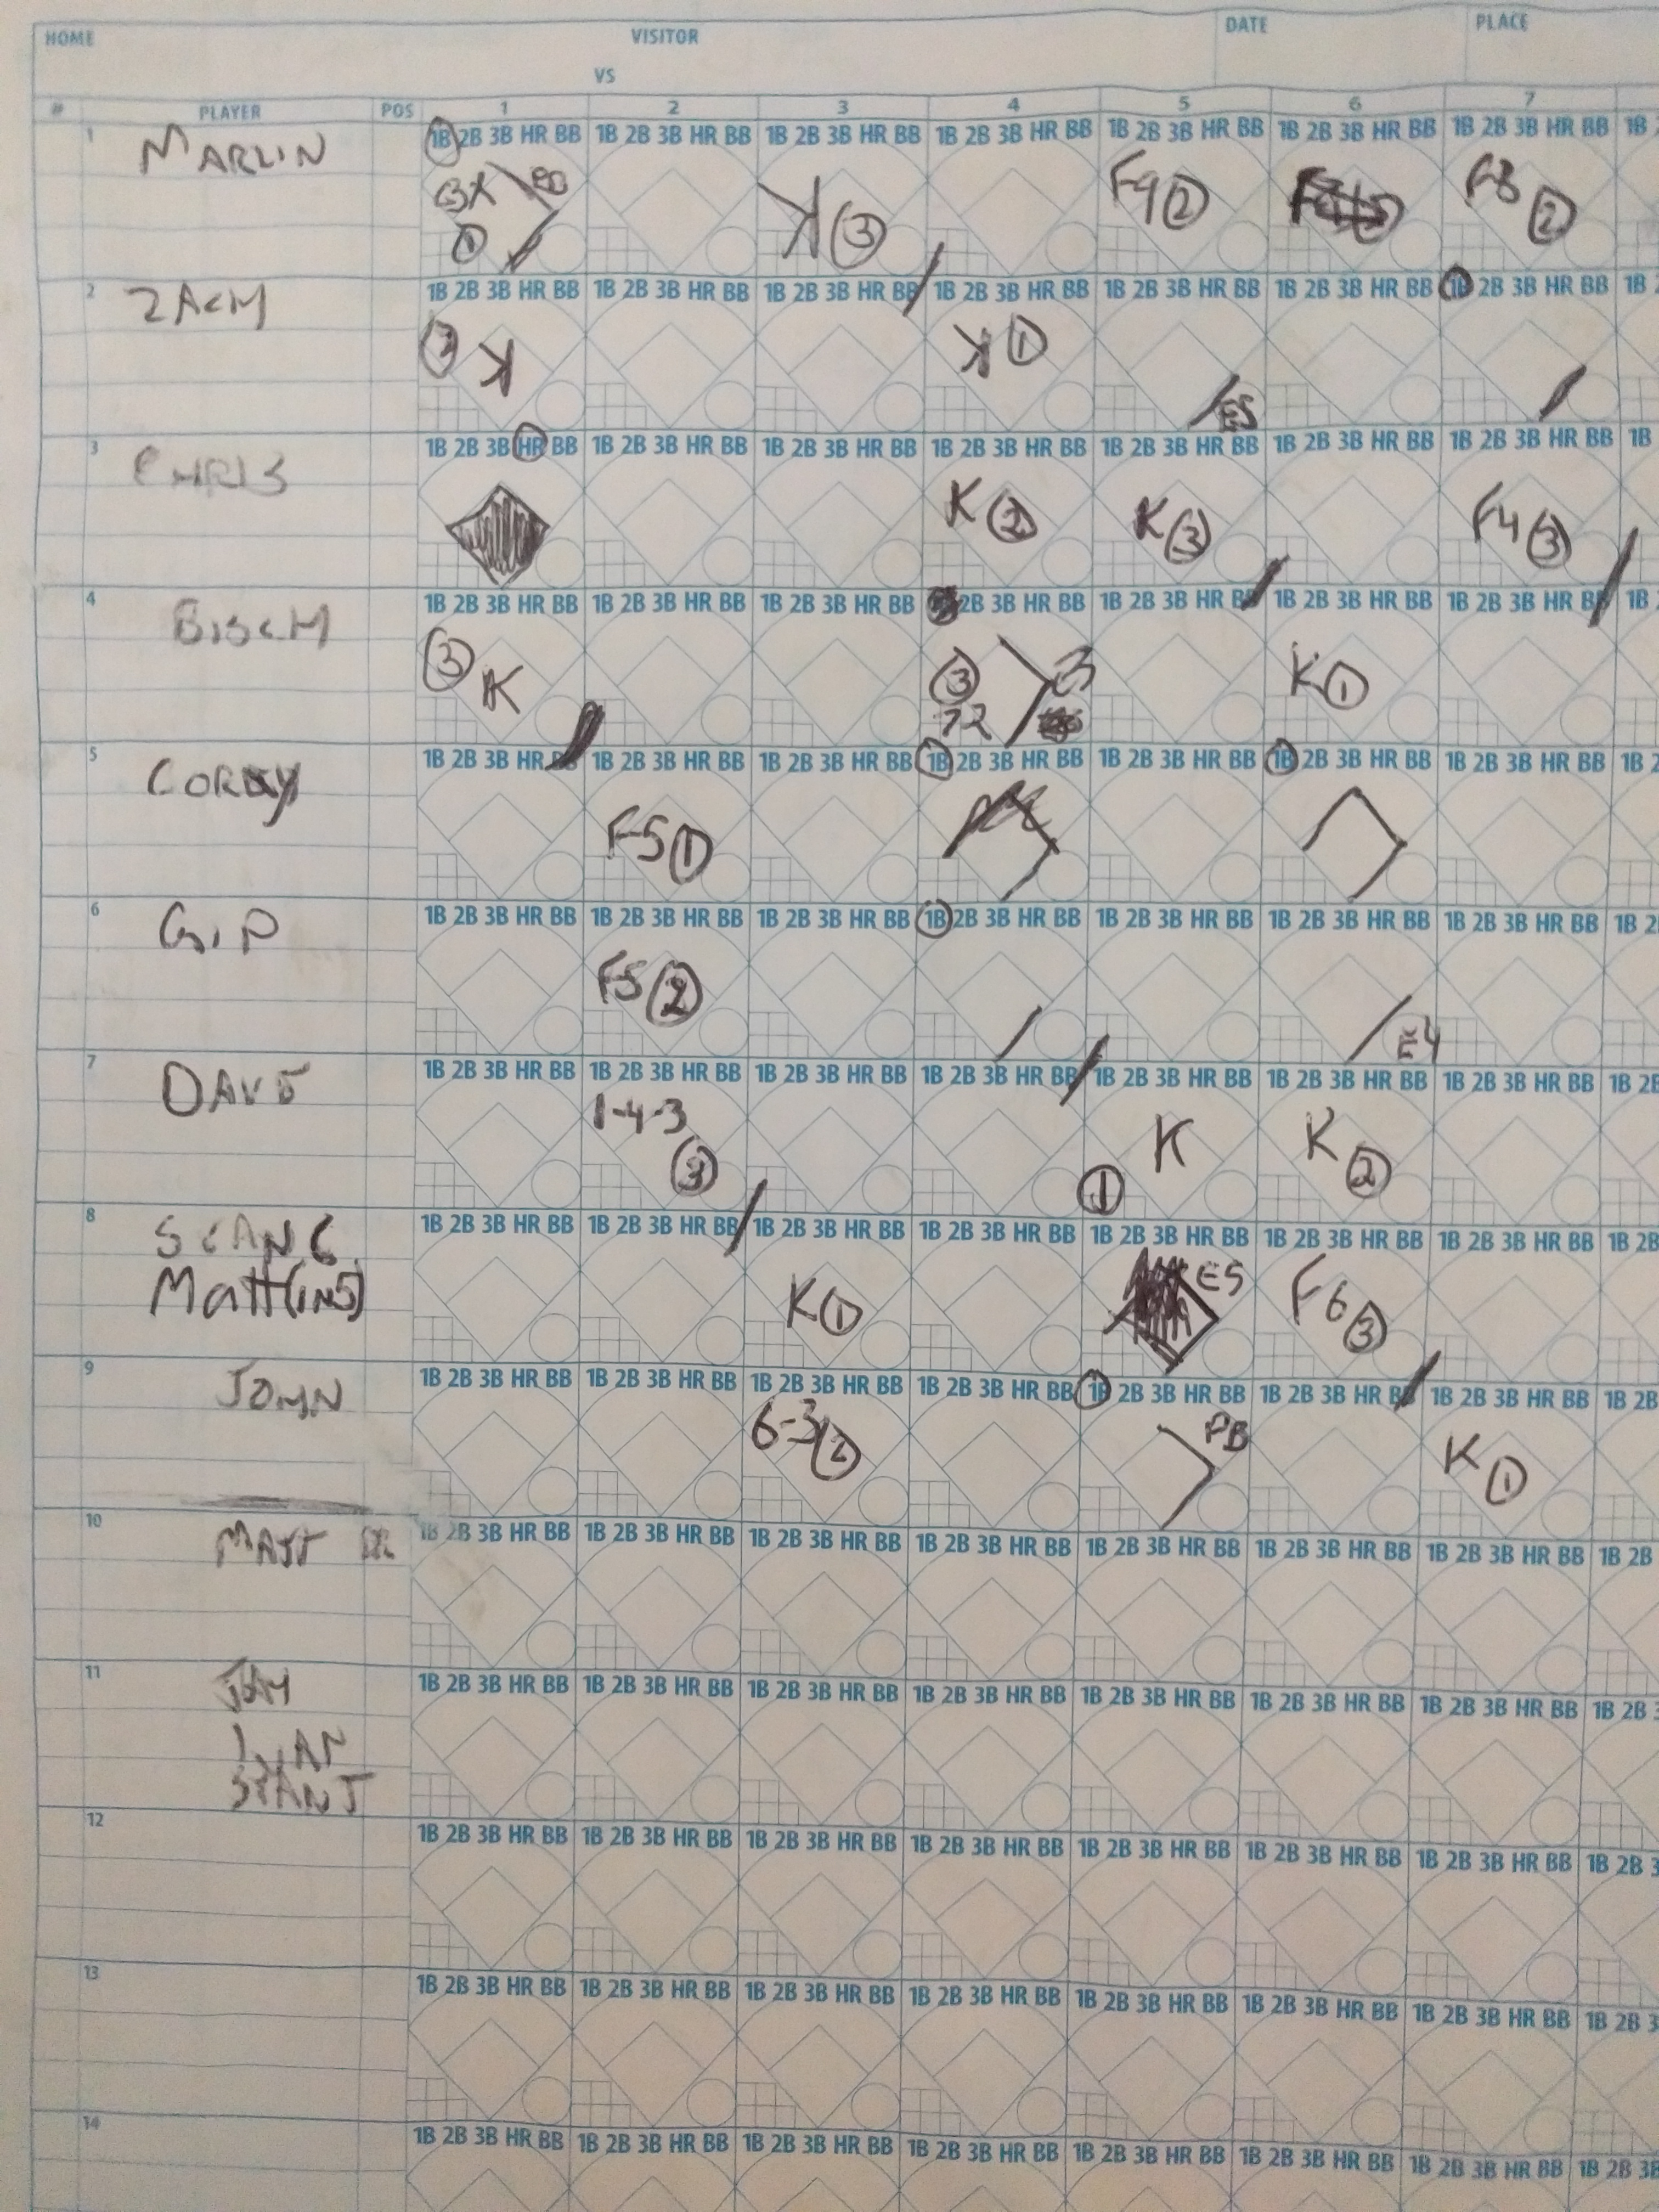 HOME VISITOR DATE PLACE
VS
# PLAYER POS 1 2 3 4 5 6 7
1 MARLIN 1B 2B 3B HR BB 1B 2B 3B HR BB 1B 2B 3B HR BB 1B 2B 3B HR BB 1B 2B 3B HR BB 1B 2B 3B HR BB 1B 2B 3B HR BB 1B
1 K 3 F9 2 F8 2
2 ZACH 1B 2B 3B HR BB 1B 2B 3B HR BB 1B 2B 3B HR BB 1B 2B 3B HR BB 1B 2B 3B HR BB 1B 2B 3B HR BB 1B 2B 3B HR BB 1B
2 K K 1 E5
3 CHRIS 1B 2B 3B HR BB 1B 2B 3B HR BB 1B 2B 3B HR BB 1B 2B 3B HR BB 1B 2B 3B HR BB 1B 2B 3B HR BB 1B 2B 3B HR BB 1B
K 2 K 3 F4 3
4 BISCH 1B 2B 3B HR BB 1B 2B 3B HR BB 1B 2B 3B HR BB 2B 3B HR BB 1B 2B 3B HR BB 1B 2B 3B HR BB 1B 2B 3B HR BB 1B
3 K 3 K 1
5 COREY 1B 2B 3B HR 1B 2B 3B HR BB 1B 2B 3B HR BB 1B 2B 3B HR BB 1B 2B 3B HR BB 1B 2B 3B HR BB 1B 2B 3B HR BB 1B 2
F5 1
6 GIP 1B 2B 3B HR BB 1B 2B 3B HR BB 1B 2B 3B HR BB 1B 2B 3B HR BB 1B 2B 3B HR BB 1B 2B 3B HR BB 1B 2B 3B HR BB 1B 2
F5 2 E4
7 DAVE 1B 2B 3B HR BB 1B 2B 3B HR BB 1B 2B 3B HR BB 1B 2B 3B HR BB 1B 2B 3B HR BB 1B 2B 3B HR BB 1B 2B 3B HR BB 1B 2B
1-4-3 3 1 K K 2
8 SEAN C 1B 2B 3B HR BB 1B 2B 3B HR BB 1B 2B 3B HR BB 1B 2B 3B HR BB 1B 2B 3B HR BB 1B 2B 3B HR BB 1B 2B 3B HR BB 1B 2B
Matt (in 5) K 1 E5 F6 3
9 JOHN 1B 2B 3B HR BB 1B 2B 3B HR BB 1B 2B 3B HR BB 1B 2B 3B HR BB 1B 2B 3B HR BB 1B 2B 3B HR B 1B 2B 3B HR BB 1B 2B
6-3 2 PB K 1
10 MATT 1B 2B 3B HR BB 1B 2B 3B HR BB 1B 2B 3B HR BB 1B 2B 3B HR BB 1B 2B 3B HR BB 1B 2B 3B HR BB 1B 2B 3B HR BB 1B 2B
11 JAY 1B 2B 3B HR BB 1B 2B 3B HR BB 1B 2B 3B HR BB 1B 2B 3B HR BB 1B 2B 3B HR BB 1B 2B 3B HR BB 1B 2B 3B HR BB 1B 2B
SEAN J
12 1B 2B 3B HR BB 1B 2B 3B HR BB 1B 2B 3B HR BB 1B 2B 3B HR BB 1B 2B 3B HR BB 1B 2B 3B HR BB 1B 2B 3B HR BB 1B 2B 3
13 1B 2B 3B HR BB 1B 2B 3B HR BB 1B 2B 3B HR BB 1B 2B 3B HR BB 1B 2B 3B HR BB 1B 2B 3B HR BB 1B 2B 3B HR BB 1B 2B 3
14 1B 2B 3B HR BB 1B 2B 3B HR BB 1B 2B 3B HR BB 1B 2B 3B HR BB 1B 2B 3B HR BB 1B 2B 3B HR BB 1B 2B 3B HR BB 1B 2B 3B